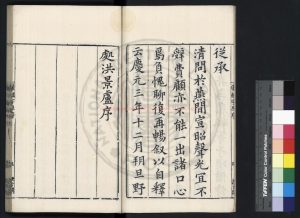 從承
清問於燕閒宣昭聲光宜不
辭費顧亦不能一出諸口心
焉負愧聊復再暢叙以自釋
云慶元三年十二月朔旦野
處洪景盧序